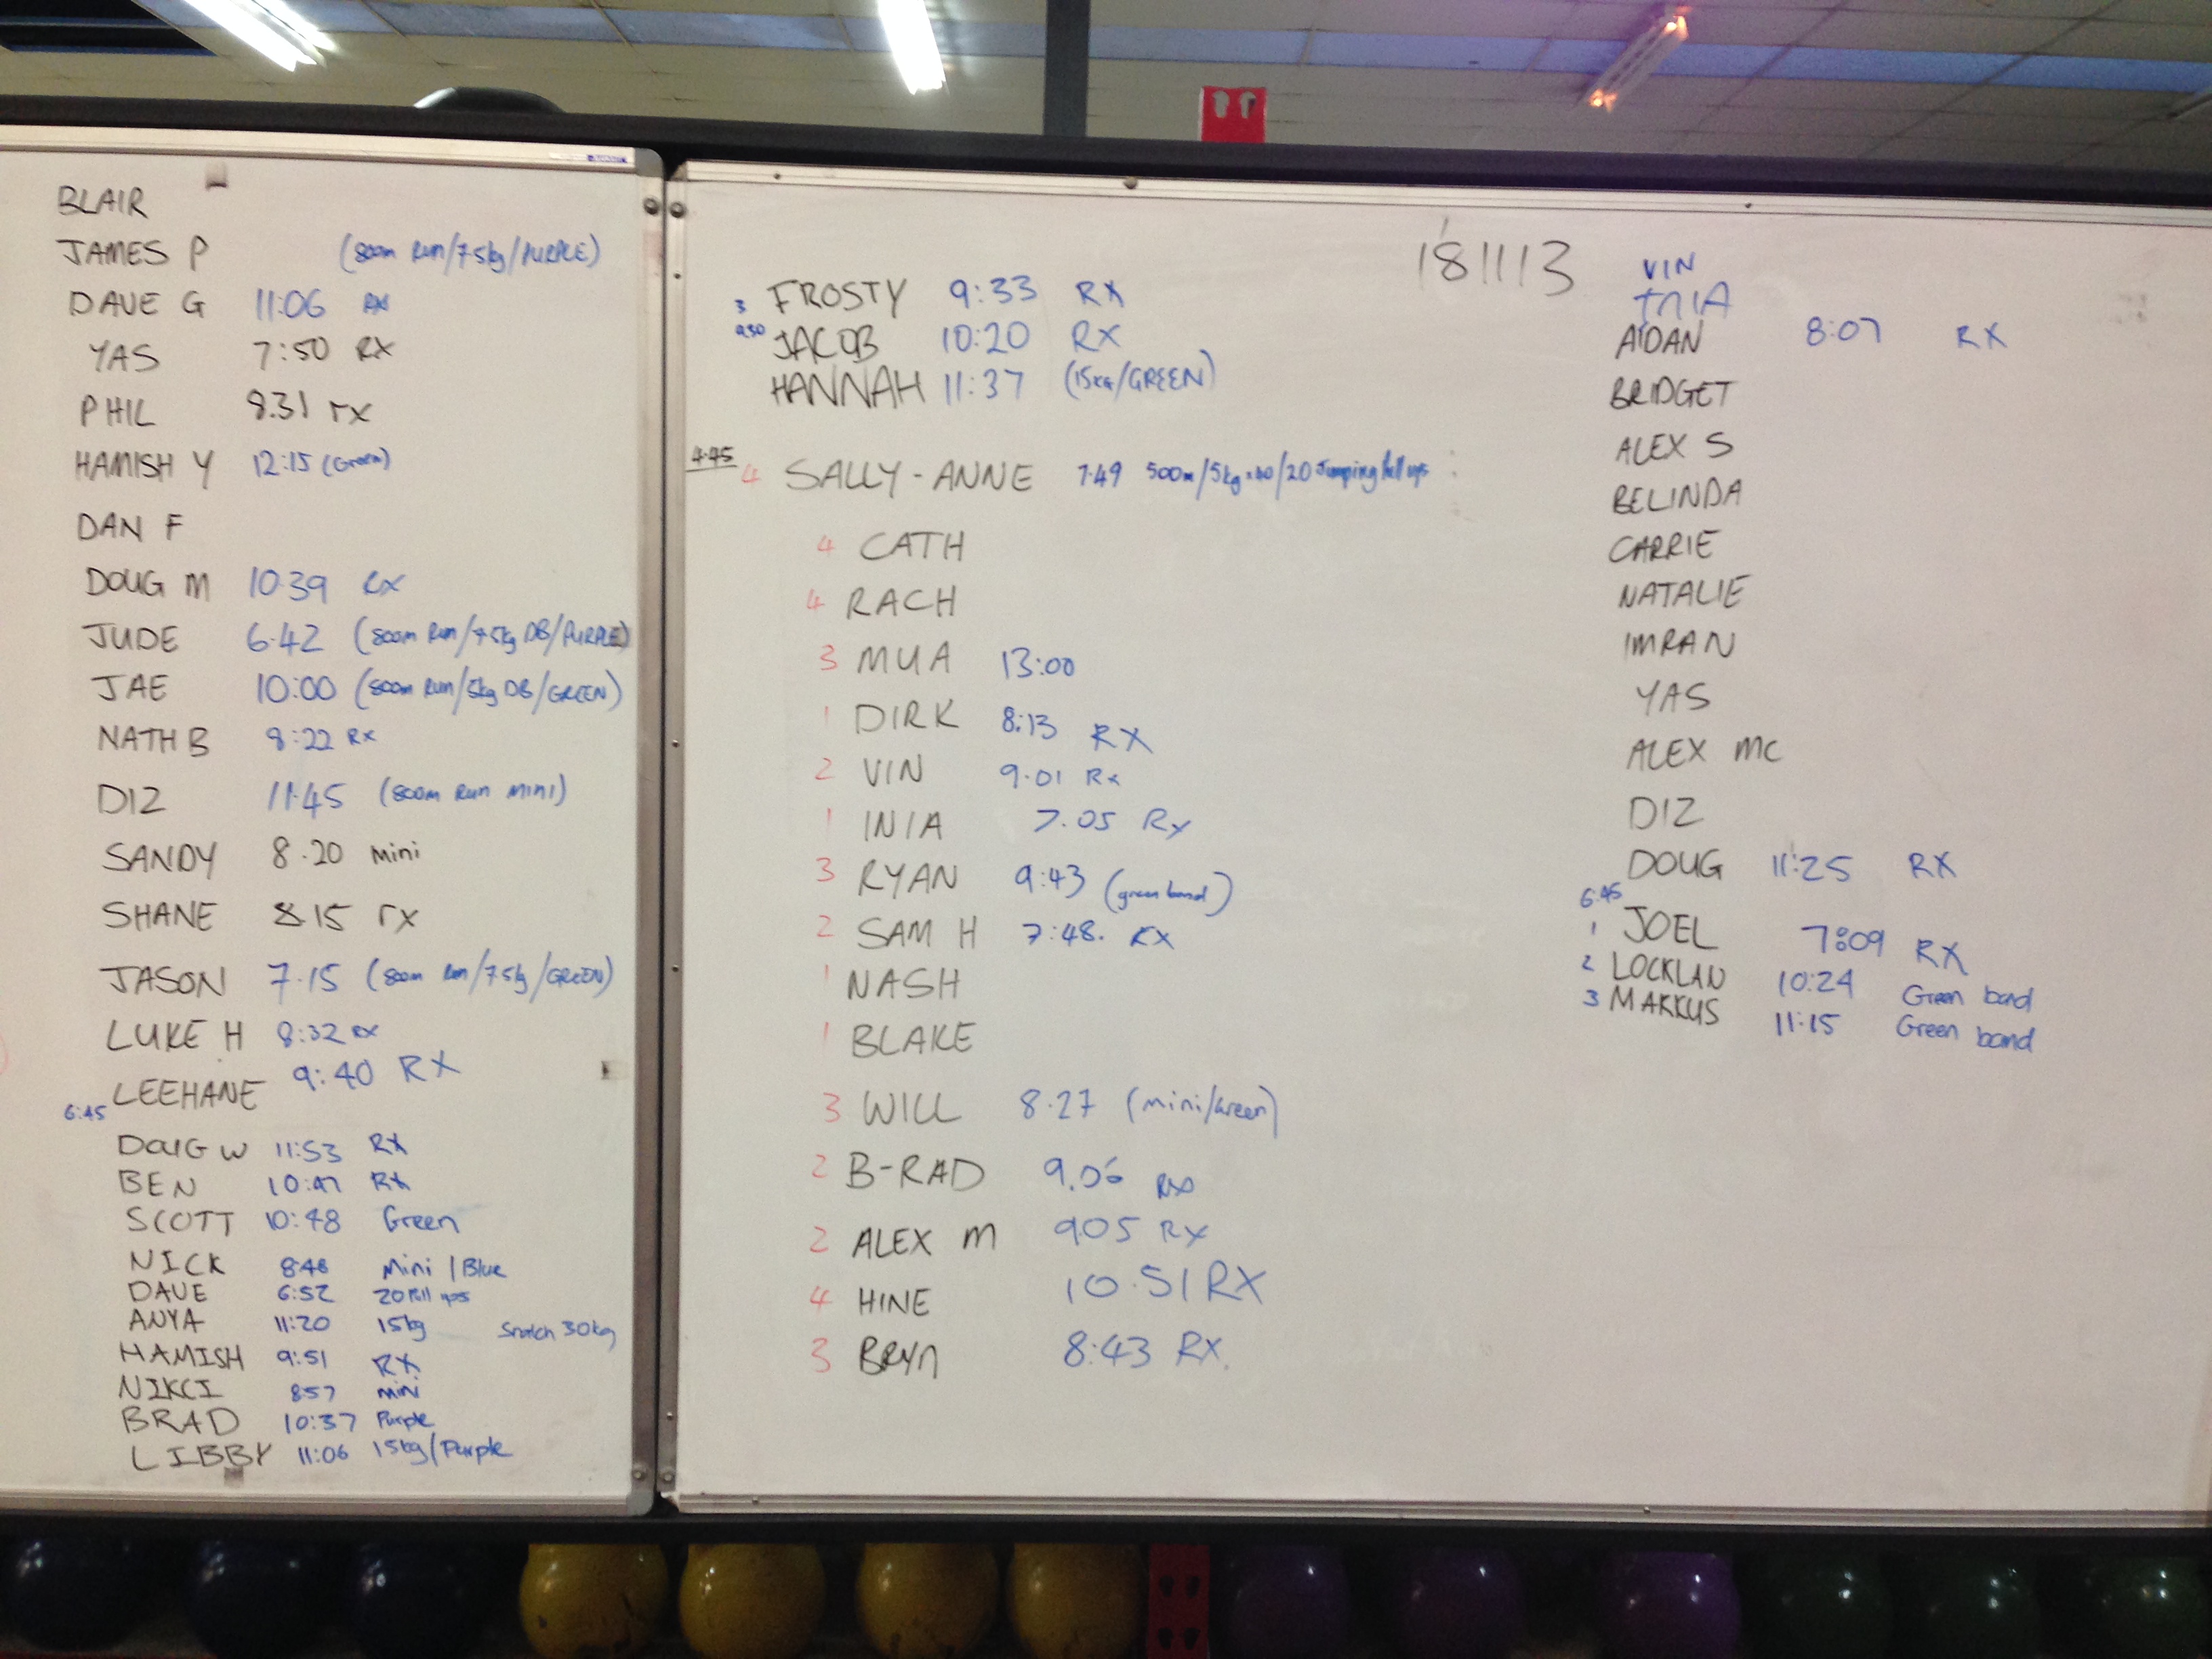 BLAIR
JAMES P (800m Run/7.5kg/PURPLE)
DAVE G 11:06 RX
YAS 7:50 RX
PHIL 8.31 rx
HAMISH Y 12:15 (Green)
DAN F
DOUG M 10.39 RX
JUDE 6.42 (800m Run/7.5kg DB/PURPLE)
JAE 10:00 (800m Run/5kg DB/GREEN)
NATH B 8:22 RX
DIZ 11.45 (800m Run Mini)
SANDY 8.20 mini
SHANE 8.15 rx
JASON 7.15 (800m Run/7.5kg/GREEN)
LUKE H 8:32 RX
LEEHANE 9:40 RX
6:45
DOUG W 11:53 RX
BEN 10:47 RX
SCOTT 10:48 Green
NICK 8:48 Mini / Blue
DAVE 6:52 20 Pull ups
ANYA 11:20 15kg Snatch 30kg
HAMISH 9:51 RX
NIKCI 857 mini
BRAD 10:37 Purple
LIBBY 11:06 15kg/Purple
181113
3 FROSTY 9:33 RX
9.30 JACOB 10:20 RX
HANNAH 11:37 (15KG/GREEN)
4.45
4 SALLY-ANNE 7.49 500m/5kg x40/20 Jumping Pull ups
4 CATH
4 RACH
3 MUA 13:00
1 DIRK 8:13 RX
2 VIN 9.01 Rx
1 INIA 7.05 Rx
3 RYAN 9:43 (green band)
2 SAM H 7:48. RX
1 NASH
1 BLAKE
3 WILL 8.27 (mini/Green)
2 B-RAD 9.06 RX
2 ALEX M 905 RX
4 HINE 10.51 RX
3 BRYN 8:43 RX.
VIN
INIA
AIDAN 8:07 RX
BRIDGET
ALEX S
BELINDA
CARRIE
NATALIE
IMRAN
YAS
ALEX MC
DIZ
DOUG 11:25 RX
6:45
1 JOEL 7:09 RX
2 LOCKLAN 10:24 Green band
3 MARKUS 11:15 Green band